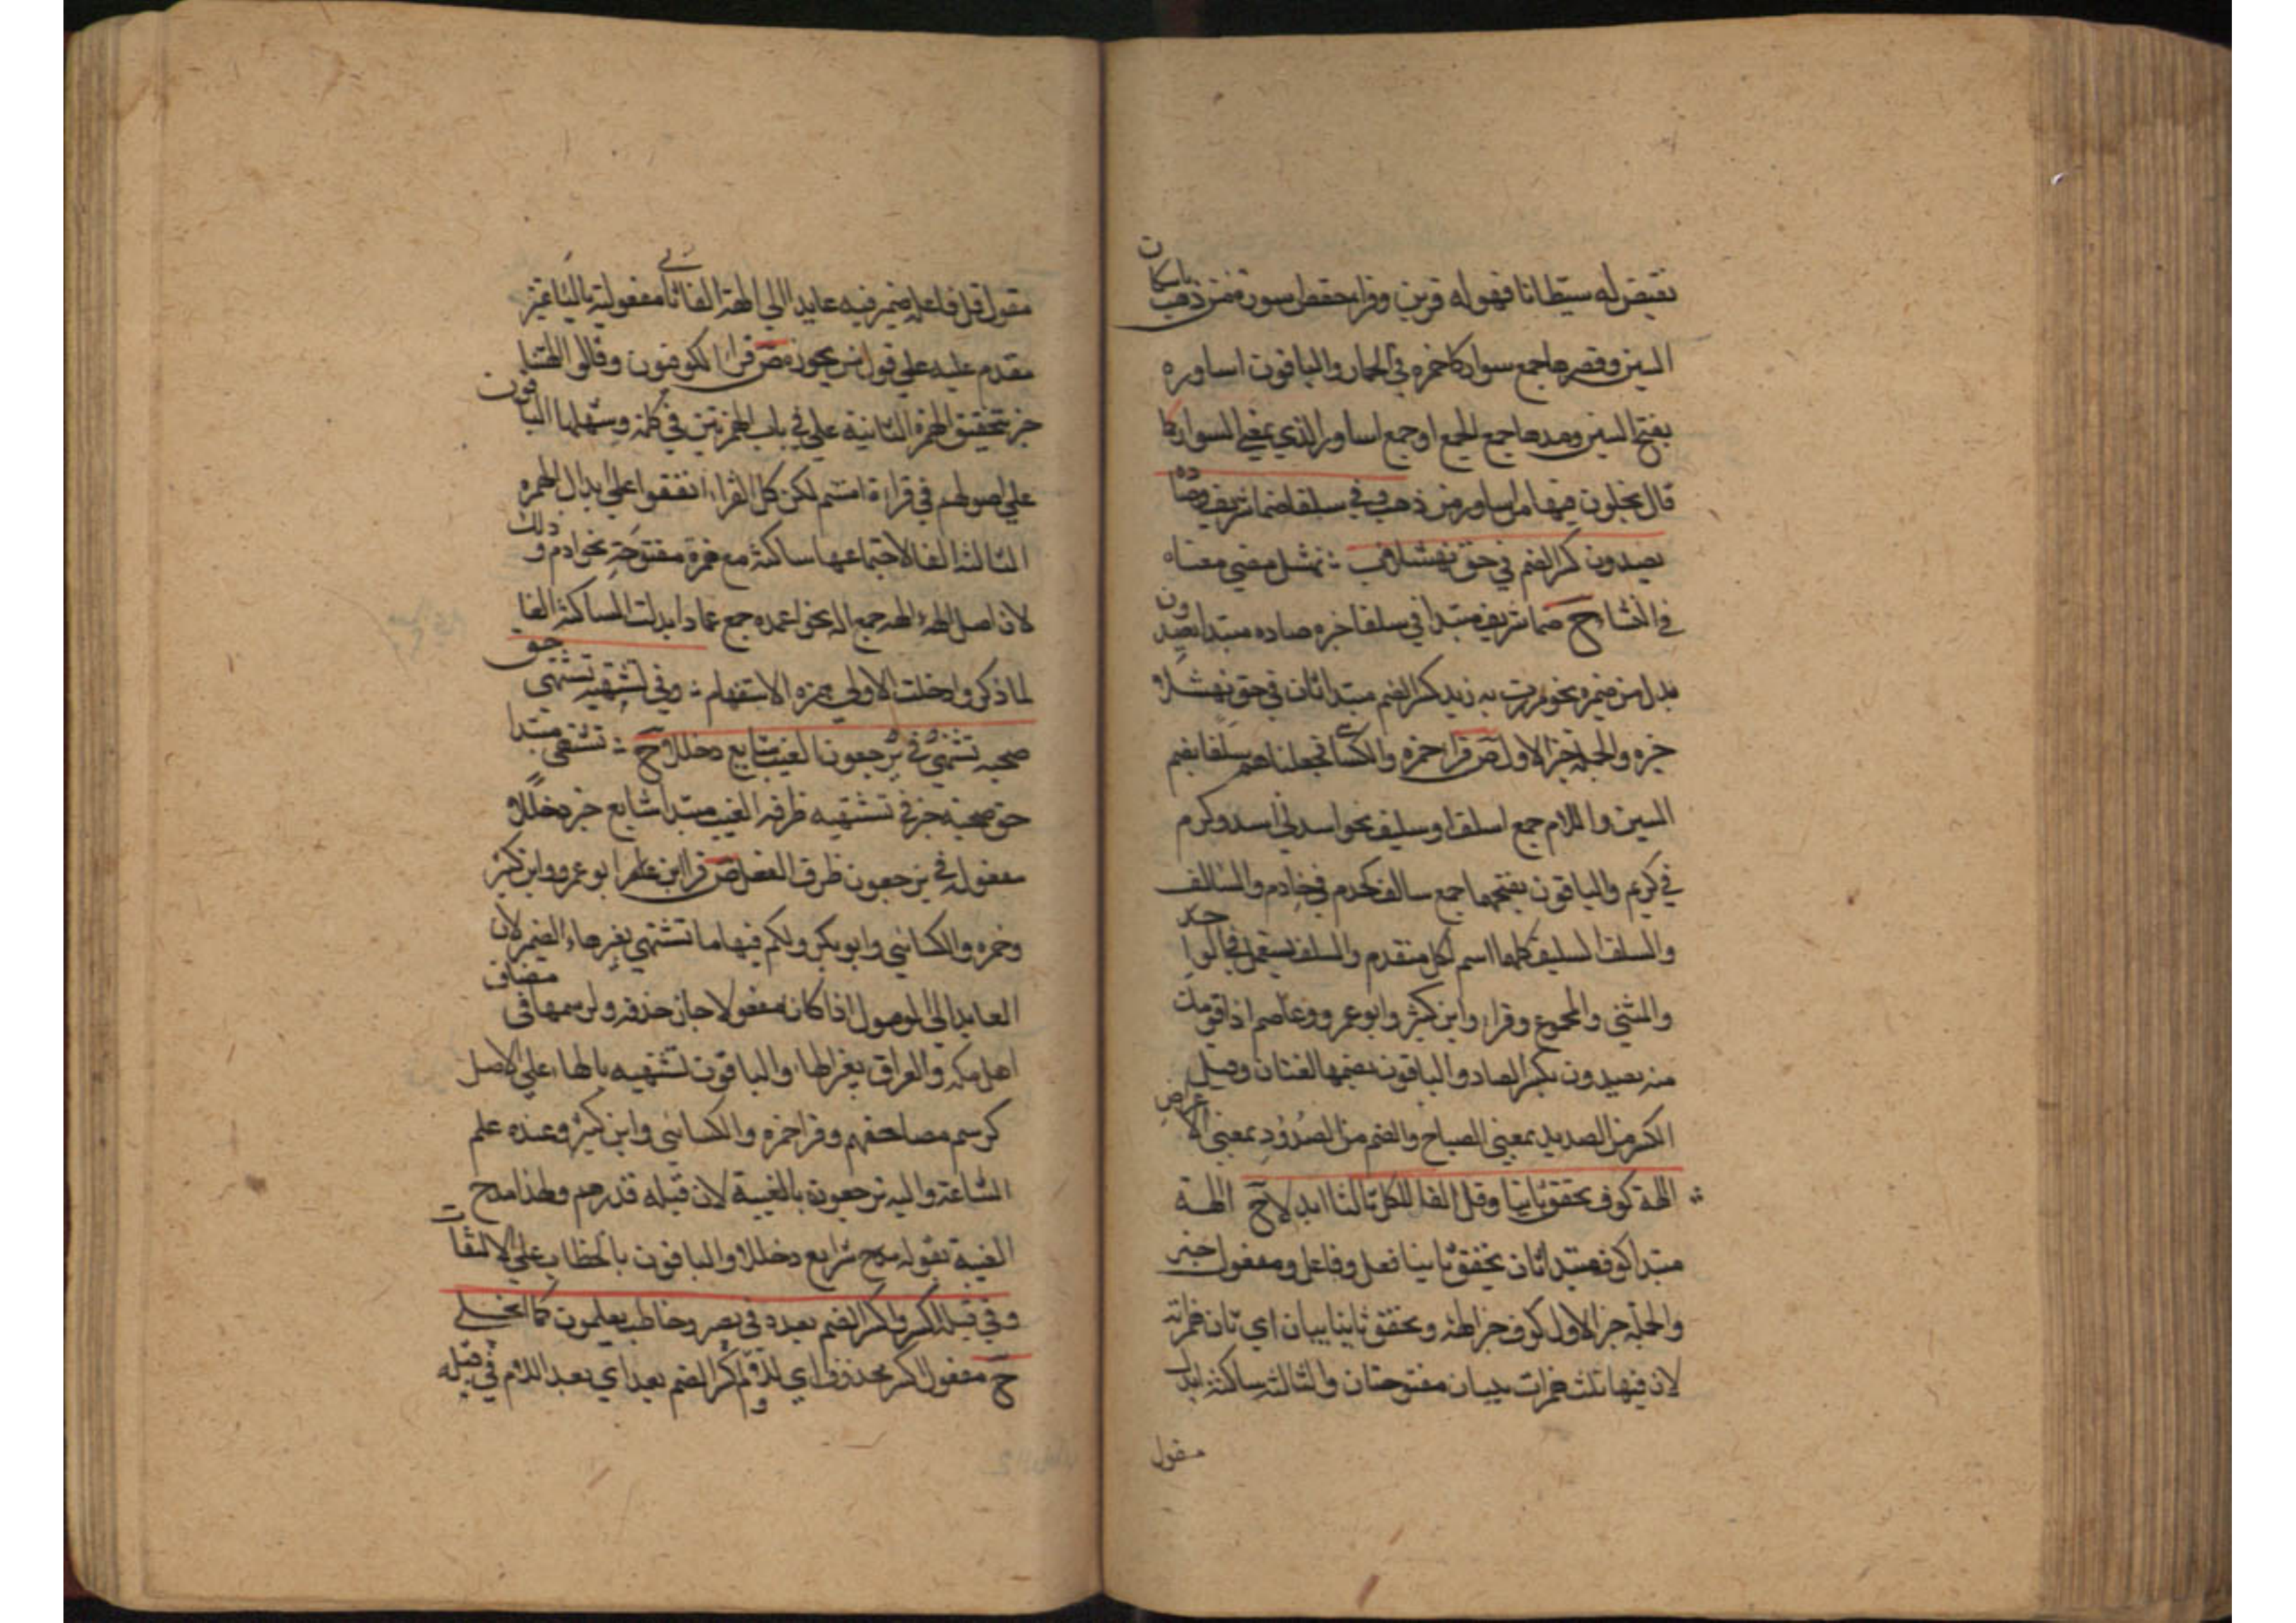 نقيض له شيطانا فهو له قرين وقرا حفص اسورة من ذهب باسكان
السين وقصرها جمع سوار كاخمره في الخمار والباقون اساوره
بفتح السين ومدها جمع الجمع او جمع اساور الذي بمعني السوار كما
قال يحلون فيها من اساور من ذهب وفي سلفا ضما شريف وصاده
يصدون كسر الضم في حق نهشلا
في النشا ح ضما شريف مبتدا في سلفا خبره صاده مبتدا يصدون
بدل من ضميره نحو مررت به زيد كسر الضم مبتدا ثان في حق نهشلا
خبره والجملة خبر الاول ص قرا حمزه والكسائي فجعلناهم سلفا بضم
السين واللام جمع اسلف او سليف نحو اسد في اسد وكرم
في كريم والباقون بفتحهما جمع سالف كخدم في خادم والسالف
والسلف السليف كلها اسم لكل متقدم والسلف يستعمل في الواحد
والمثني والمجموع وقرا وابن كثير وابو عمرو وعاصم اذا قومك
منه يصدون بكسر الصاد والباقون بضمها لغتان وقيل
الكسر من الصديد بمعني الصياح والضم من الصدود بمعني الاعراض
الهة كوف يحقق ثانيا وقل الفا للكل ثالثا ابدلا ح الهة
مبتدا كوف مبتدا ثان يحقق ثانيا فعل وفاعل ومفعول خبر
والجملة خبر الاول كوف خبر الهة ويحقق ثانيا بيان اي ثان همزاته
لان فيها ثلث همزات بيان مفتوحتان والثالثه ساكنة ابدل
مقول
مقول قل فاعله ضمير فيه عايد الي الهة الفا ثاني مفعوليه ثالثا تمييز
مقدم عليه علي قول من يجوز ص قرا الكوفيون وقالوا الهتنا
خبر بتحقيق الهمزة الثانية علي في باب الهمزتين في كلمة وسهلها الباقون
علي اصولهم في قراءة امنتم لكن كل القراء اتفقوا علي ابدال الهمزه
الثالثه الفا لاجتماعها ساكنة مع همزة مفتوحة نحو ادم وذلك
لان اصل الهة الهه جمع اله نحو اعمده جمع عماد ابدلت الساكنة الفا
لما ذكر وادخلت الاولي همزه الاستفهام وفي تشتهيه تشتهي حق
صحبه تشتهي في ترجعون الغيب شايع دخللا ح تشتهي مبتدا
حق صحبه خبر في تشتهيه ظرفه الغيب مبتدا شايع خبر دخللا
مفعوله في يرجعون ظرف الفعل ص قرا ابن عامر ابو عمرو وابن كثير
وحمزه والكسائي وابو بكر ولكم فيها ما تشتهي بغير هاء الضمير لان
العايد الي الموصول اذا كان مفعولا جاز حذفه ولرسمها في مصاف
اهل مكه والعراق بغير الهاء والباقون تشتهيه بالهاء علي الاصل
كرسم مصاحفهم وقرا حمزه والكسائي وابن كثير وعنده علم
الساعة واليه ترجعون بالغيبة لان قبله فذرهم ولهذا مدح
الغيبة بقوله مدح شايع دخللا والباقون بالخطاب علي الالتفات
وفي قيله اكسر واكسر الضم بعده في نصير وخاطب يعلمون كما انجلي
ح مفعول اكسر محذوف اي اللام واكسر الضم بعد اي بعد اللام في قيله